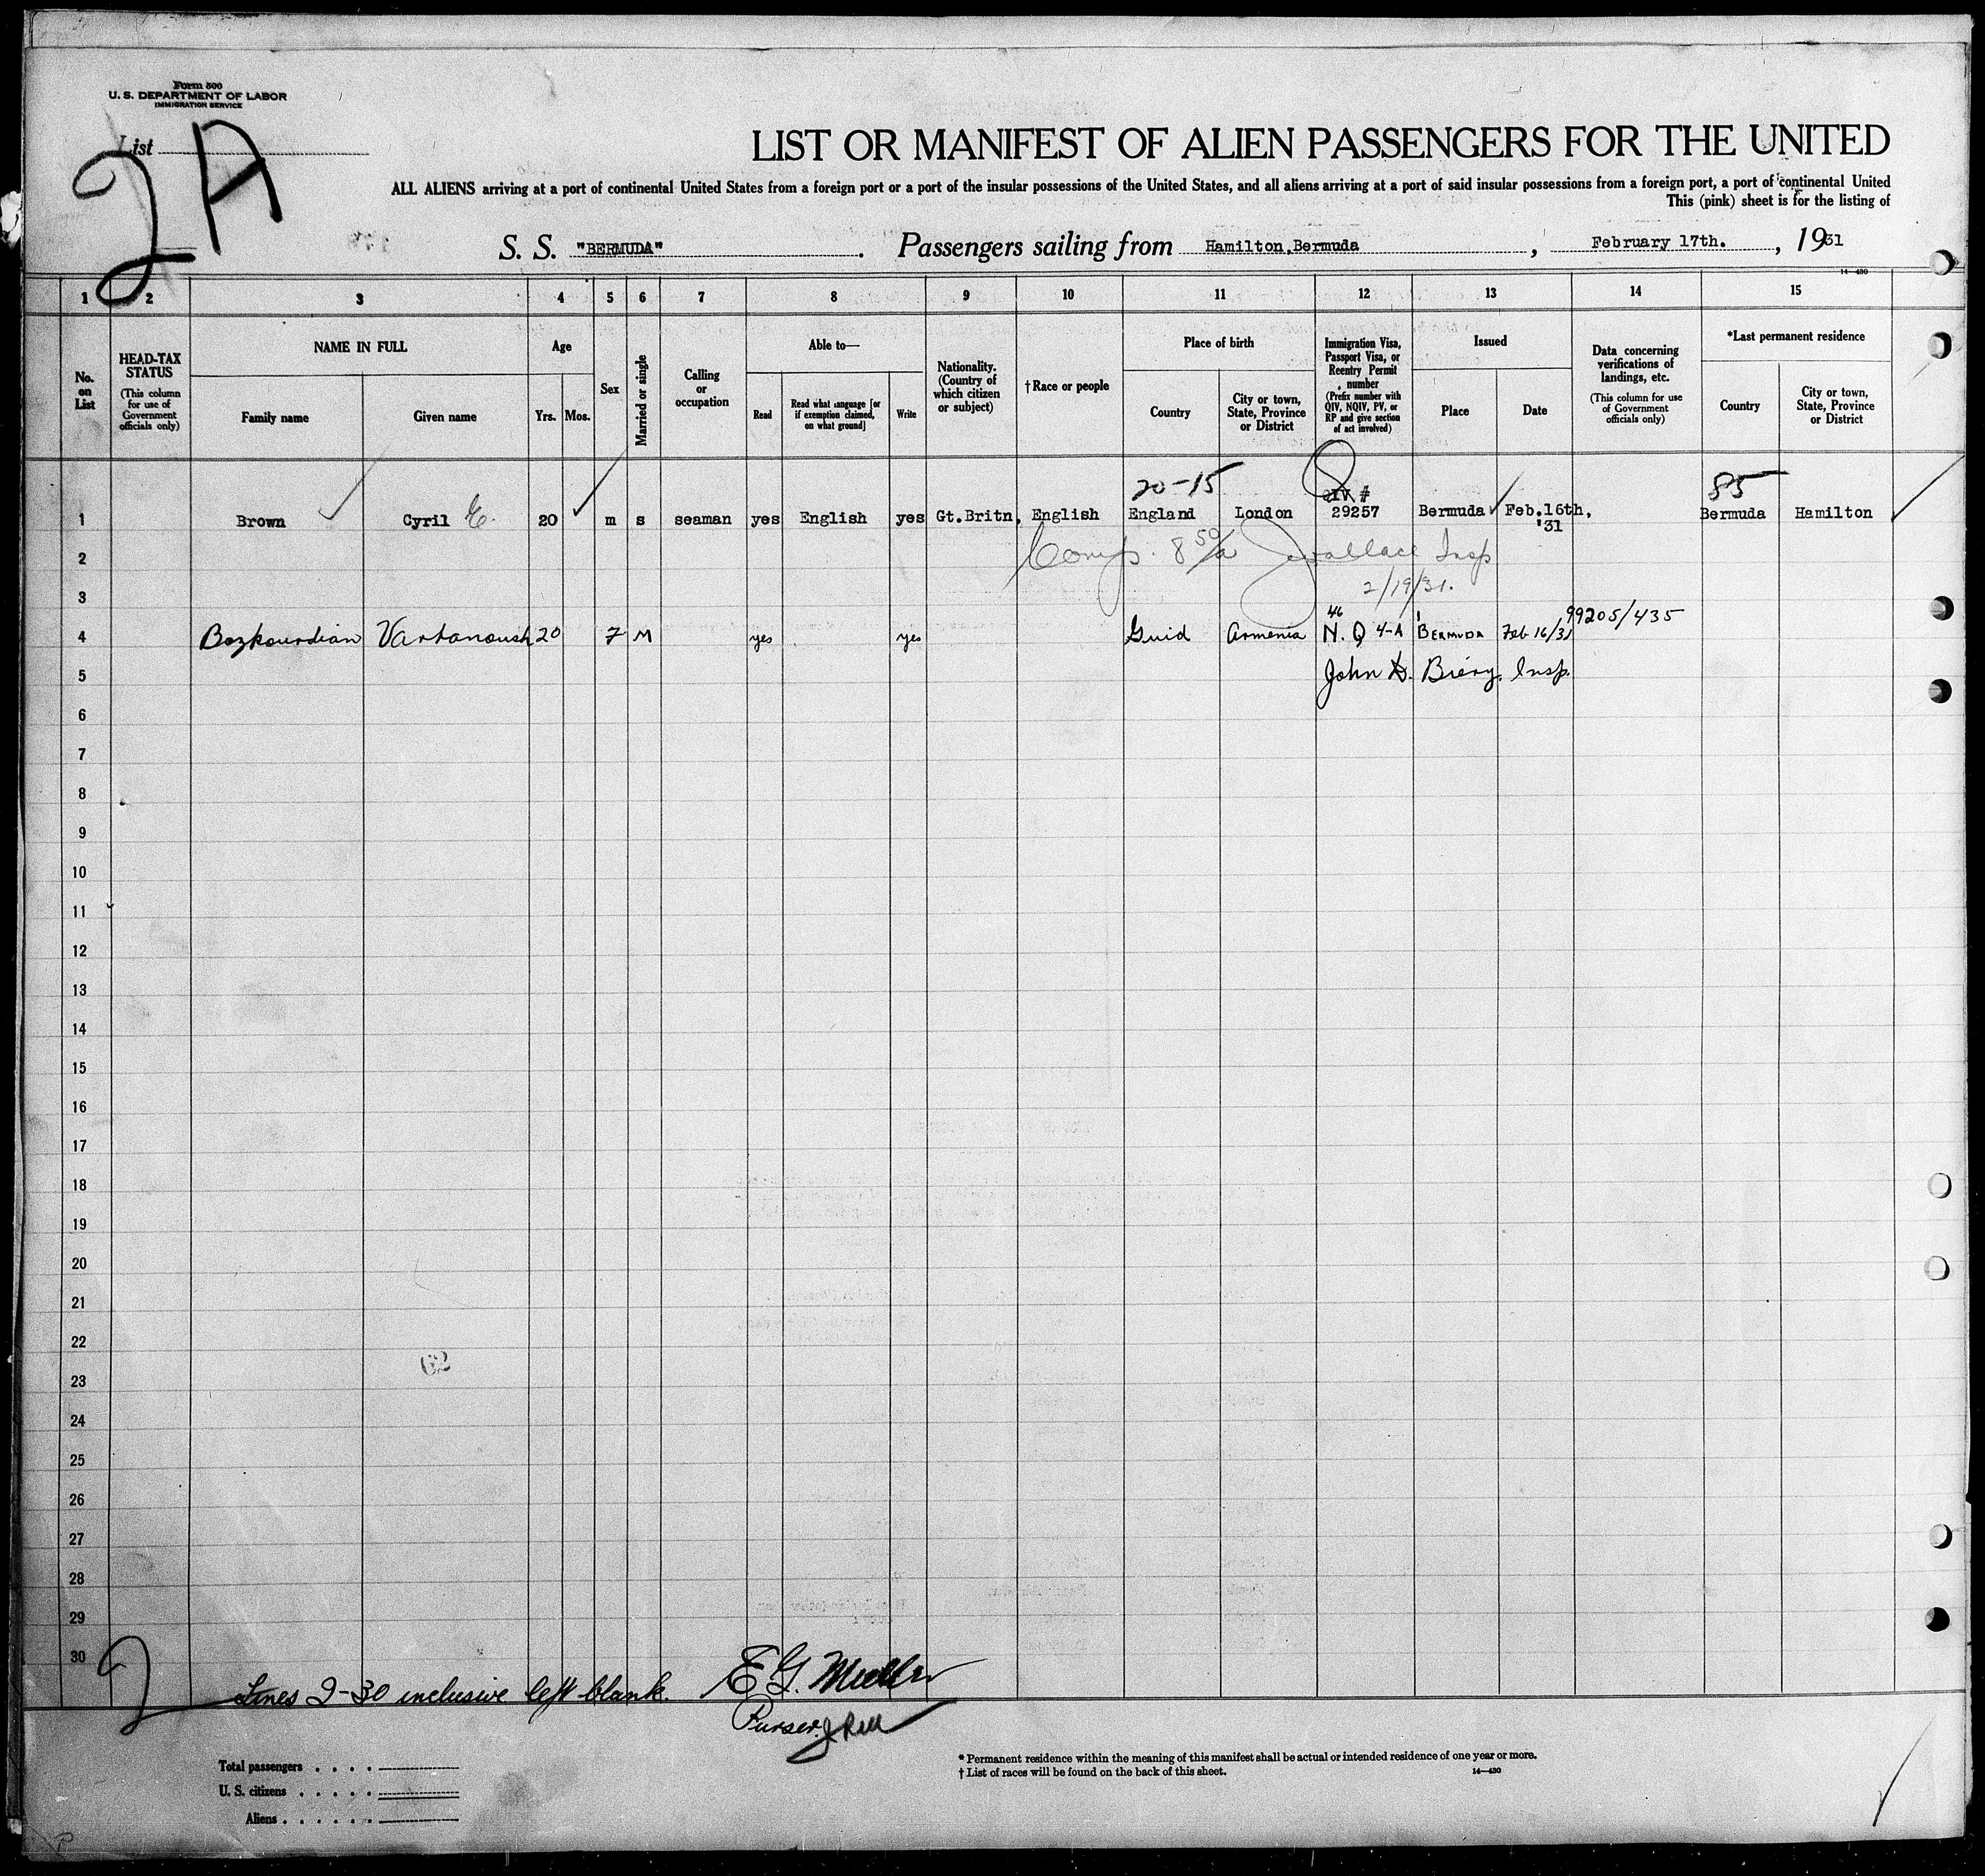 Form 500
U. S. DEPARTMENT OF LABOR
IMMIGRATION SERVICE
List
2 A
LIST OR MANIFEST OF ALIEN PASSENGERS FOR THE UNITED
ALL ALIENS arriving at a port of continental United States from a foreign port or a port of the insular possessions of the United States, and all aliens arriving at a port of said insular possessions from a foreign port, a port of continental United
This (pink) sheet is for the listing of
S. S. "BERMUDA". Passengers sailing from Hamilton, Bermuda, February 17th., 1931
14—430
1 2 3 4 5 6 7 8 9 10 11 12 13 14 15
No. on List
HEAD-TAX STATUS (This column for use of Government officials only)
NAME IN FULL
Family name
Given name
Age
Yrs. Mos.
Sex
Married or single
Calling or occupation
Able to—
Read
Read what language [or if exemption claimed, on what ground]
Write
Nationality. (Country of which citizen or subject)
†Race or people
Place of birth
Country
City or town, State, Province or District
Immigration Visa, Passport Visa, or Reentry Permit number (Prefix number with QIV, NQIV, PV, or RP and give section of act involved)
Issued
Place
Date
Data concerning verifications of landings, etc. (This column for use of Government officials only)
*Last permanent residence
Country
City or town, State, Province or District
20-15
85
1 Brown Cyril E. 20 m s seaman yes English yes Gt.Britn. English England London QIV # 29257 Bermuda Feb.16th, '31 Bermuda Hamilton
2 Comp. 8 50/a Wallace Insp
3 2/19/31.
46 99205/435
4 Bozkourdian Vartanoush 20 F M yes yes Guid Armenia N. Q 4-A BERMUDA Feb 16/31
5 John D. Biery. Insp.
6
7
8
9
10
11
12
13
14
15
16
17
18
19
20
21
22
62
23
24
25
26
27
28
29
30
Lines 2-30 inclusive left blank. E G. Muller
Purser.
Total passengers . . . .
U. S. citizens . . . . .
Aliens . . . . . .
* Permanent residence within the meaning of this manifest shall be actual or intended residence of one year or more.
† List of races will be found on the back of this sheet.
14—430